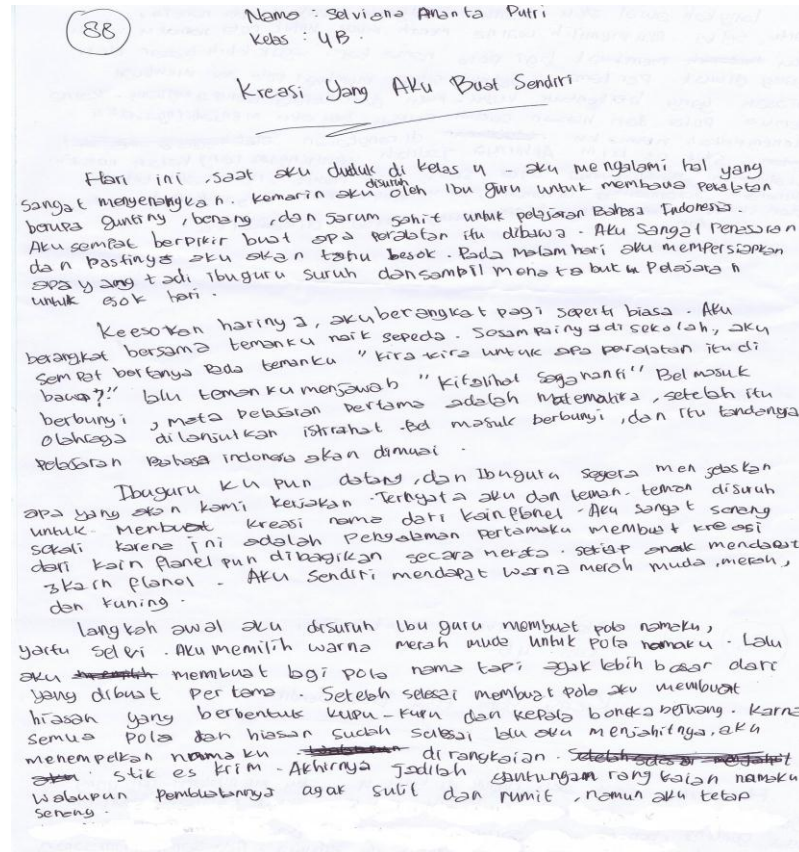 88
Nama : Selviana Ananta Putri
Kelas : 4B.
Kreasi Yang Aku Buat Sendiri
Hari ini, saat aku duduk di kelas 4 - aku mengalami hal yang
sangat menyenangkan. Kemarin aku disuruh oleh Ibu guru untuk membawa peralatan
berupa gunting, benang, dan jarum jahit untuk pelajaran Bahasa Indonesia.
Aku sempat berpikir buat apa peralatan itu dibawa. Aku sangat penasaran
dan pastinya aku akan tahu besok. Pada malam hari aku mempersiapkan
apa yang tadi ibu guru suruh dan sambil menata buku Pelajaran
untuk esok hari.
Keesokan harinya, aku berangkat pagi seperti biasa. Aku
berangkat bersama temanku naik sepeda. Sesampainya di sekolah, aku
sempat bertanya pada temanku "kira-kira untuk apa peralatan itu di
bawa?" lalu temanku menjawab "Kita lihat saja nanti" Bel masuk
berbunyi, mata pelajaran pertama adalah Matematika, setelah itu
olahraga dilanjutkan istirahat. Bel masuk berbunyi, dan itu tandanya
pelajaran Bahasa indonesia akan dimuai.
Ibu guru ku pun datang, dan Ibu guru segera menjelaskan
apa yang akan kami kerjakan. Ternyata aku dan teman-teman disuruh
untuk membuat kreasi nama dari kain planel. Aku sangat senang
sekali karena ini adalah pengalaman pertamaku membuat kreasi
dari kain planel pun dibagikan secara merata. setiap anak mendapat
3 kain planel. Aku sendiri mendapat warna merah muda, merah,
dan kuning.
Langkah awal aku disuruh Ibu guru membuat pola namaku,
yaitu Selvi. Aku memilih warna merah muda untuk pola namaku. Lalu
aku membuat lagi pola nama tapi agak lebih besar dari
yang dibuat pertama. Setelah selesai membuat pola aku membuat
hiasan yang berbentuk kupu-kupu dan kepala boneka beruang. Karna
semua pola dan hiasan sudah selesai lalu aku menjahitnya. aku
menempelkan nama ku di rangkaian. Setelah selesai menjahit
aku stik es krim. Akhirnya jadilah gantungan rangkaian namaku
walaupun pembuatannya agak sulit dan rumit, namun aku tetap
senang.